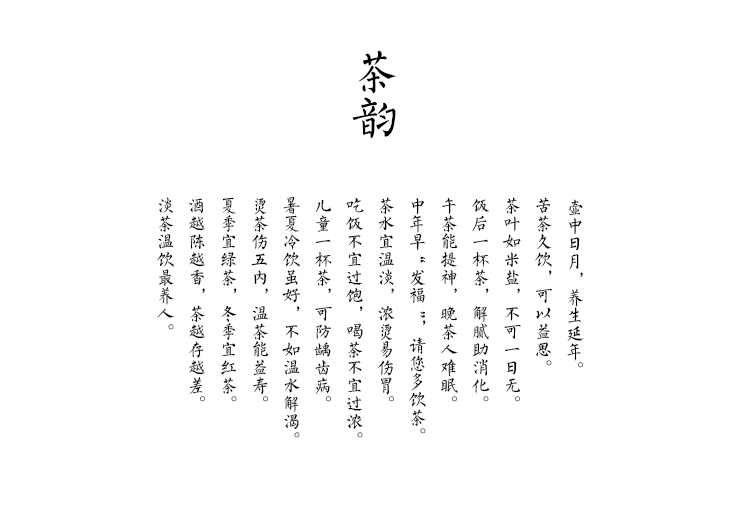 茶韵
壶中日月，养生延年。
苦茶久饮，可以益思。
茶叶如米盐，不可一日无。
饭后一杯茶，解腻助消化。
午茶能提神，晚茶人难眠。
中年早“发福”，请您多饮茶。
茶水宜温淡，浓烫易伤胃。
吃饭不宜过饱，喝茶不宜过浓。
儿童一杯茶，可防龋齿病。
暑夏冷饮虽好，不如温水解渴。
烫茶伤五内，温茶能益寿。
夏季宜绿茶，冬季宜红茶。
酒越陈越香，茶越存越差。
淡茶温饮最养人。